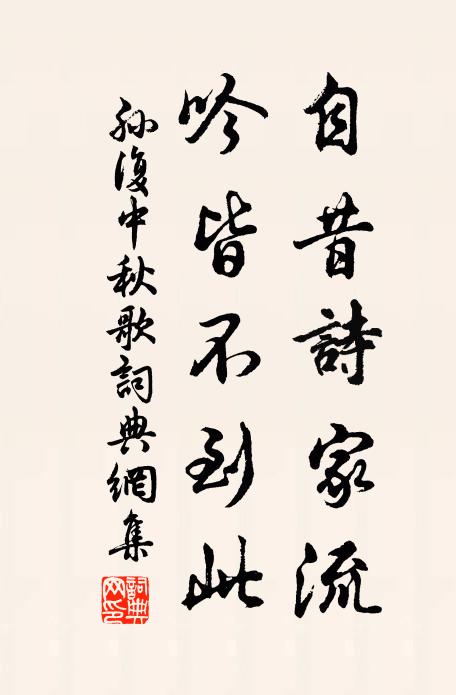 自昔詩家流
吟皆不到此
孫復中秋歌詞典網集
詞典網印